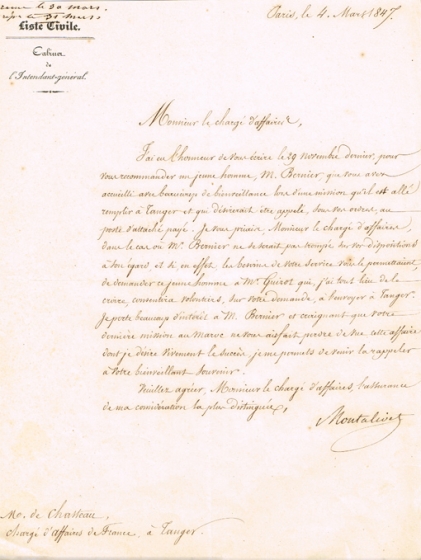 le 20 mars.
le 31 mars
Liste Civile.
Cabinet
de
l'Intendant-général.
Paris, le 4. Mars 1847.
Monsieur le chargé d'affaires,
J'ai eu l'honneur de vous écrire le 29 novembre dernier, pour
vous recommander un jeune homme, M. Bernier que vous avez
accueilli avec beaucoup de bienveillance lors d'une mission qu'il est allé
remplir à Tanger et qui désirerait être appelé, sous vos ordres, au
poste d'attaché payé. Je vous priais, Monsieur le chargé d'affaires,
dans le cas où Mr. Bernier ne se serait pas trompé sur vos dispositions
à son égard et si, en effet, les besoins de votre service vous le permettraient,
de demander ce jeune homme, à Mr. Guizot qui, j'ai tout lieu de le
croire, consentira volontiers, sur votre demande, à l'envoyer à Tanger.
Je porte beaucoup d'intérêt à M. Bernier et craignant que votre
dernière mission au Maroc ne vous ait fait perdre de vue cette affaire
dont je désire vivement le succès, je me permets de venir la rappeler
à votre bienveillant souvenir.
Veuillez agréer, Monsieur le chargé d'affaires, l'assurance
de ma considération la plus distinguée,
Montalivet
Mr. de Chasteau,
Chargé d'affaires de France, à Tanger.